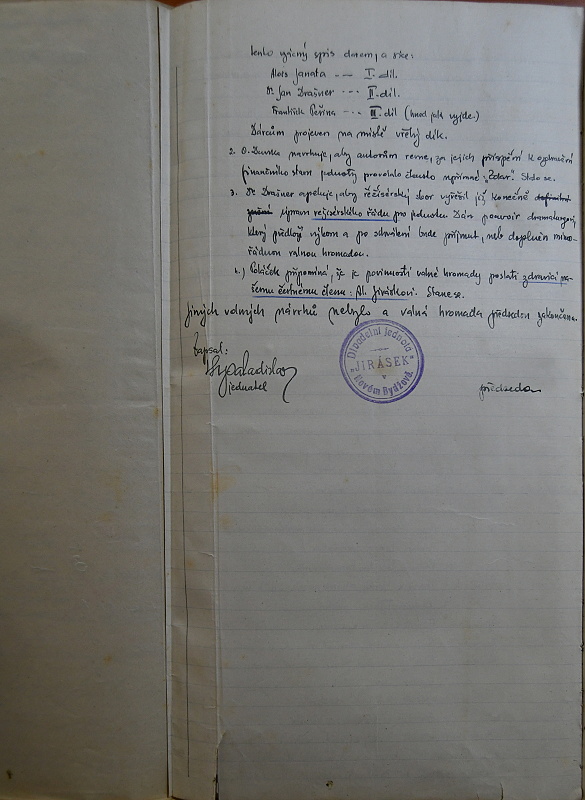 tento vzácný spis darem, a sice:
Alois Janata --- I. díl.
Dr. Jan Drašner --- II. díl.
František Peřina --- III. díl (hned jak vyjde.)
Dárcům projeven na místě vřelý dík.
2. O. navrhuje, aby autorům revue, za jejich přispění k ozdravění
finančního stavu jednoty provolalo členstvo upřímné "Zdar". Stalo se.
3. Dr. Drašner apeluje, aby režisérský sbor vyřešil již konečně
úpravu režisérského řádu pro jednotu. Dán dramaturgovi,
který předloží výboru a po schválení bude přijmut, neb doplněn mimo-
řádnou valnou hromadou.
4.) Poláček připomíná, že je povinností valné hromady poslati zdravici na-
šemu čestnému členu: Al. Jiráskovi. Stane se.
Jiných volných návrhů nebylo a valná hromada předsedou zakončena.
Zapsal:
Ladislav
jednatel
předseda
Divadelní jednota
"JIRÁSEK"
v
Novém Bydžově